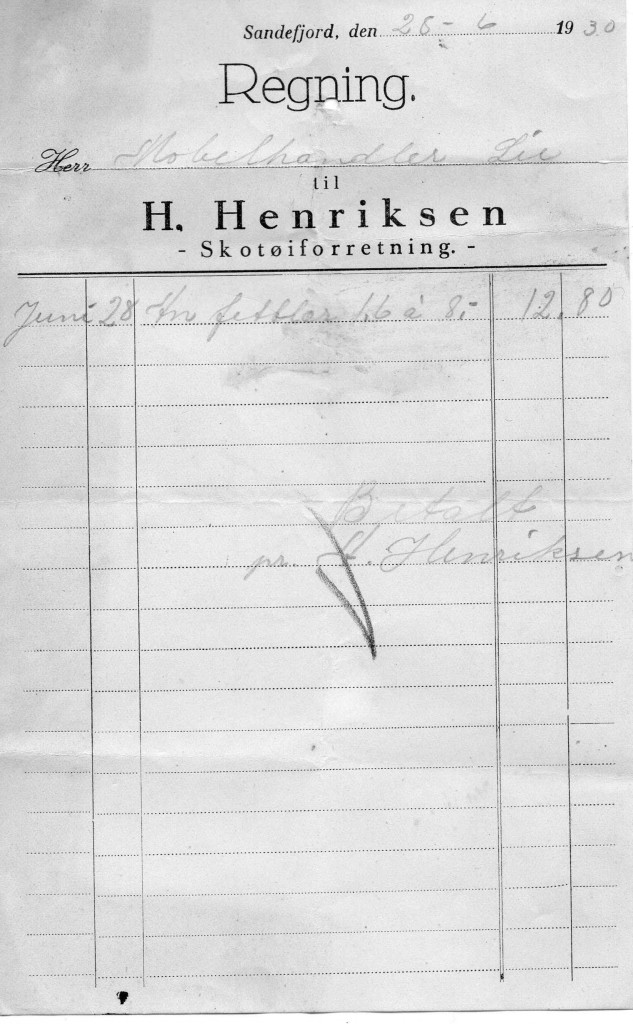 Sandefjord, den 28 - 6 1930
Regning.
Herr Møbelhandler Lie
til
H. Henriksen
- Skotøiforretning. -
Juni 28 16 à 8,- 12.80
Betalt
pr. H. Henriksen